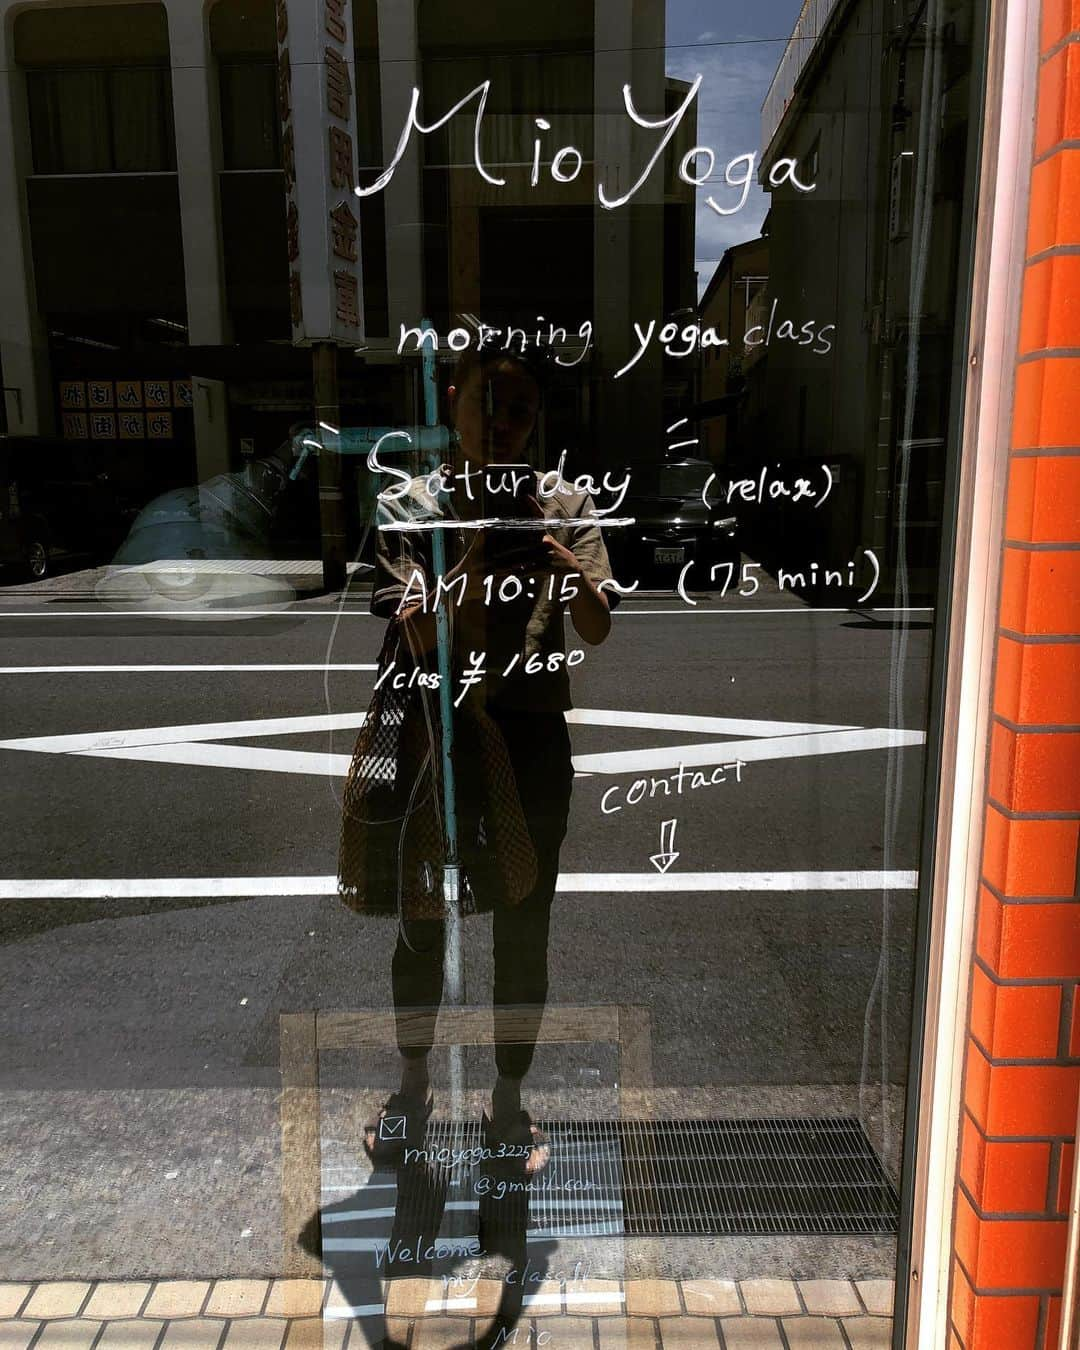 Mio Yoga
morning yoga class
Saturday (relax)
AM 10:15~ (75 mini)
/class ¥1680
contact
mioyoga3225
@gmail.com
Welcome
my class!!
Mio
がんばれ
わが街!!